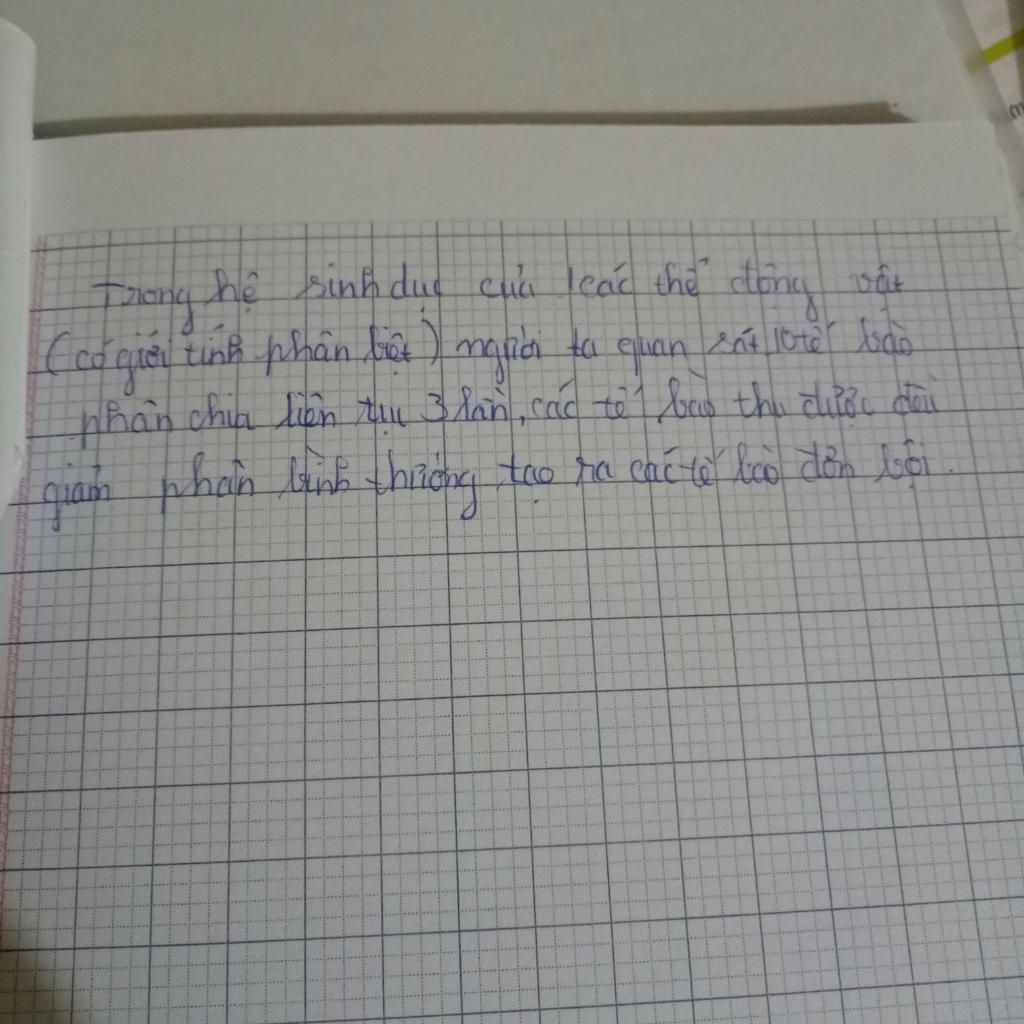 Trong hệ sinh dục của 1 các thể động vật
(có giới tính phân biệt) người ta quan sát 10 tế bào
phân chia liên tục 3 lần, các tế bào thu được đều
giảm phân bình thường tạo ra các tế bào đơn bội.